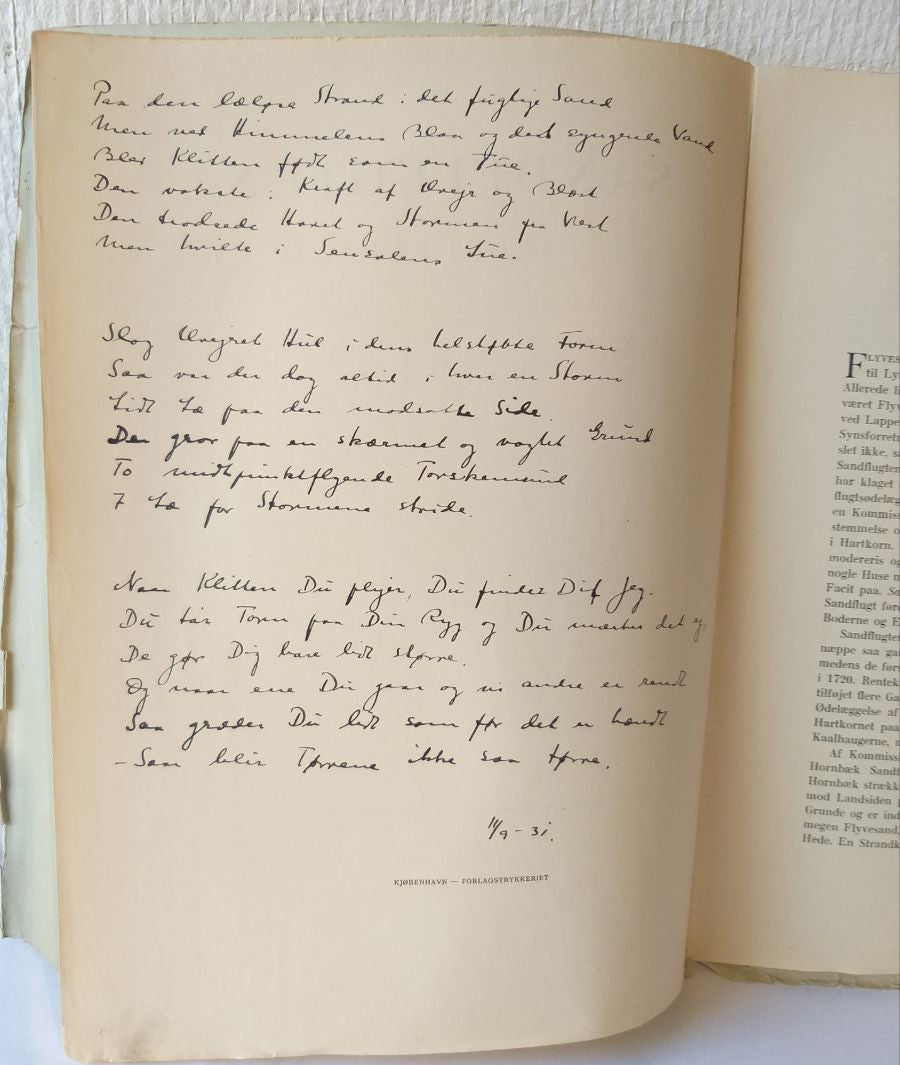 Paa den læløse Strand i det fugtige Sand
Men ved Himmelens Blaa og det syngende Vand
Blev Klitten født som en Tue.
Den vokste i Kraft af Uvejr og Blæst
Den trodsede Havet og Stormen fra Vest
Men hvilte i Lue.
Slog Uvejret Hul i dens helstøbte Form
Saa var der dog altid i hver en Storm
Lidt Læ paa den modsatte Side.
Der gror paa en skærmet og vogtet Grund
To
I Læ for Stormene stride.
Naar Klitten Du pløjer, Du finder Dit Jeg.
Du tar Torn paa Din Ryg og Du mærker det ej
De gør Dig bare lidt større.
Og naar ene Du gaar og vi andre er rendt
Saa græder Du lidt som før det er hændt
– Saa blir Tørrene ikke saa tørre.
11/9 - 31.
KJØBENHAVN — FORLAGSTRYKKERIET
FLYVES
til Ly
Allerede li
været Flyv
ved Lappe
Synsforretn
slet ikke, sa
Sandflugten
har klaget
flugtsødelæg
en Kommiss
stemmelse o
i Hartkorn.
modereris og
nogle Huse n
Facit paa. Sø
Sandflugt føre
Boderne og E
Sandflugten
næppe saa ga
medens de førs
i 1720. Renteka
tilføjet flere Ga
Ødelæggelse af
Hartkornet paa
Kaalhaugerne, n
Af Kommissi
Hornbæk Sandf
Hornbæk strækk
mod Landsiden
Grunde og er ind
megen Flyvesand,
Hede. En Strandk